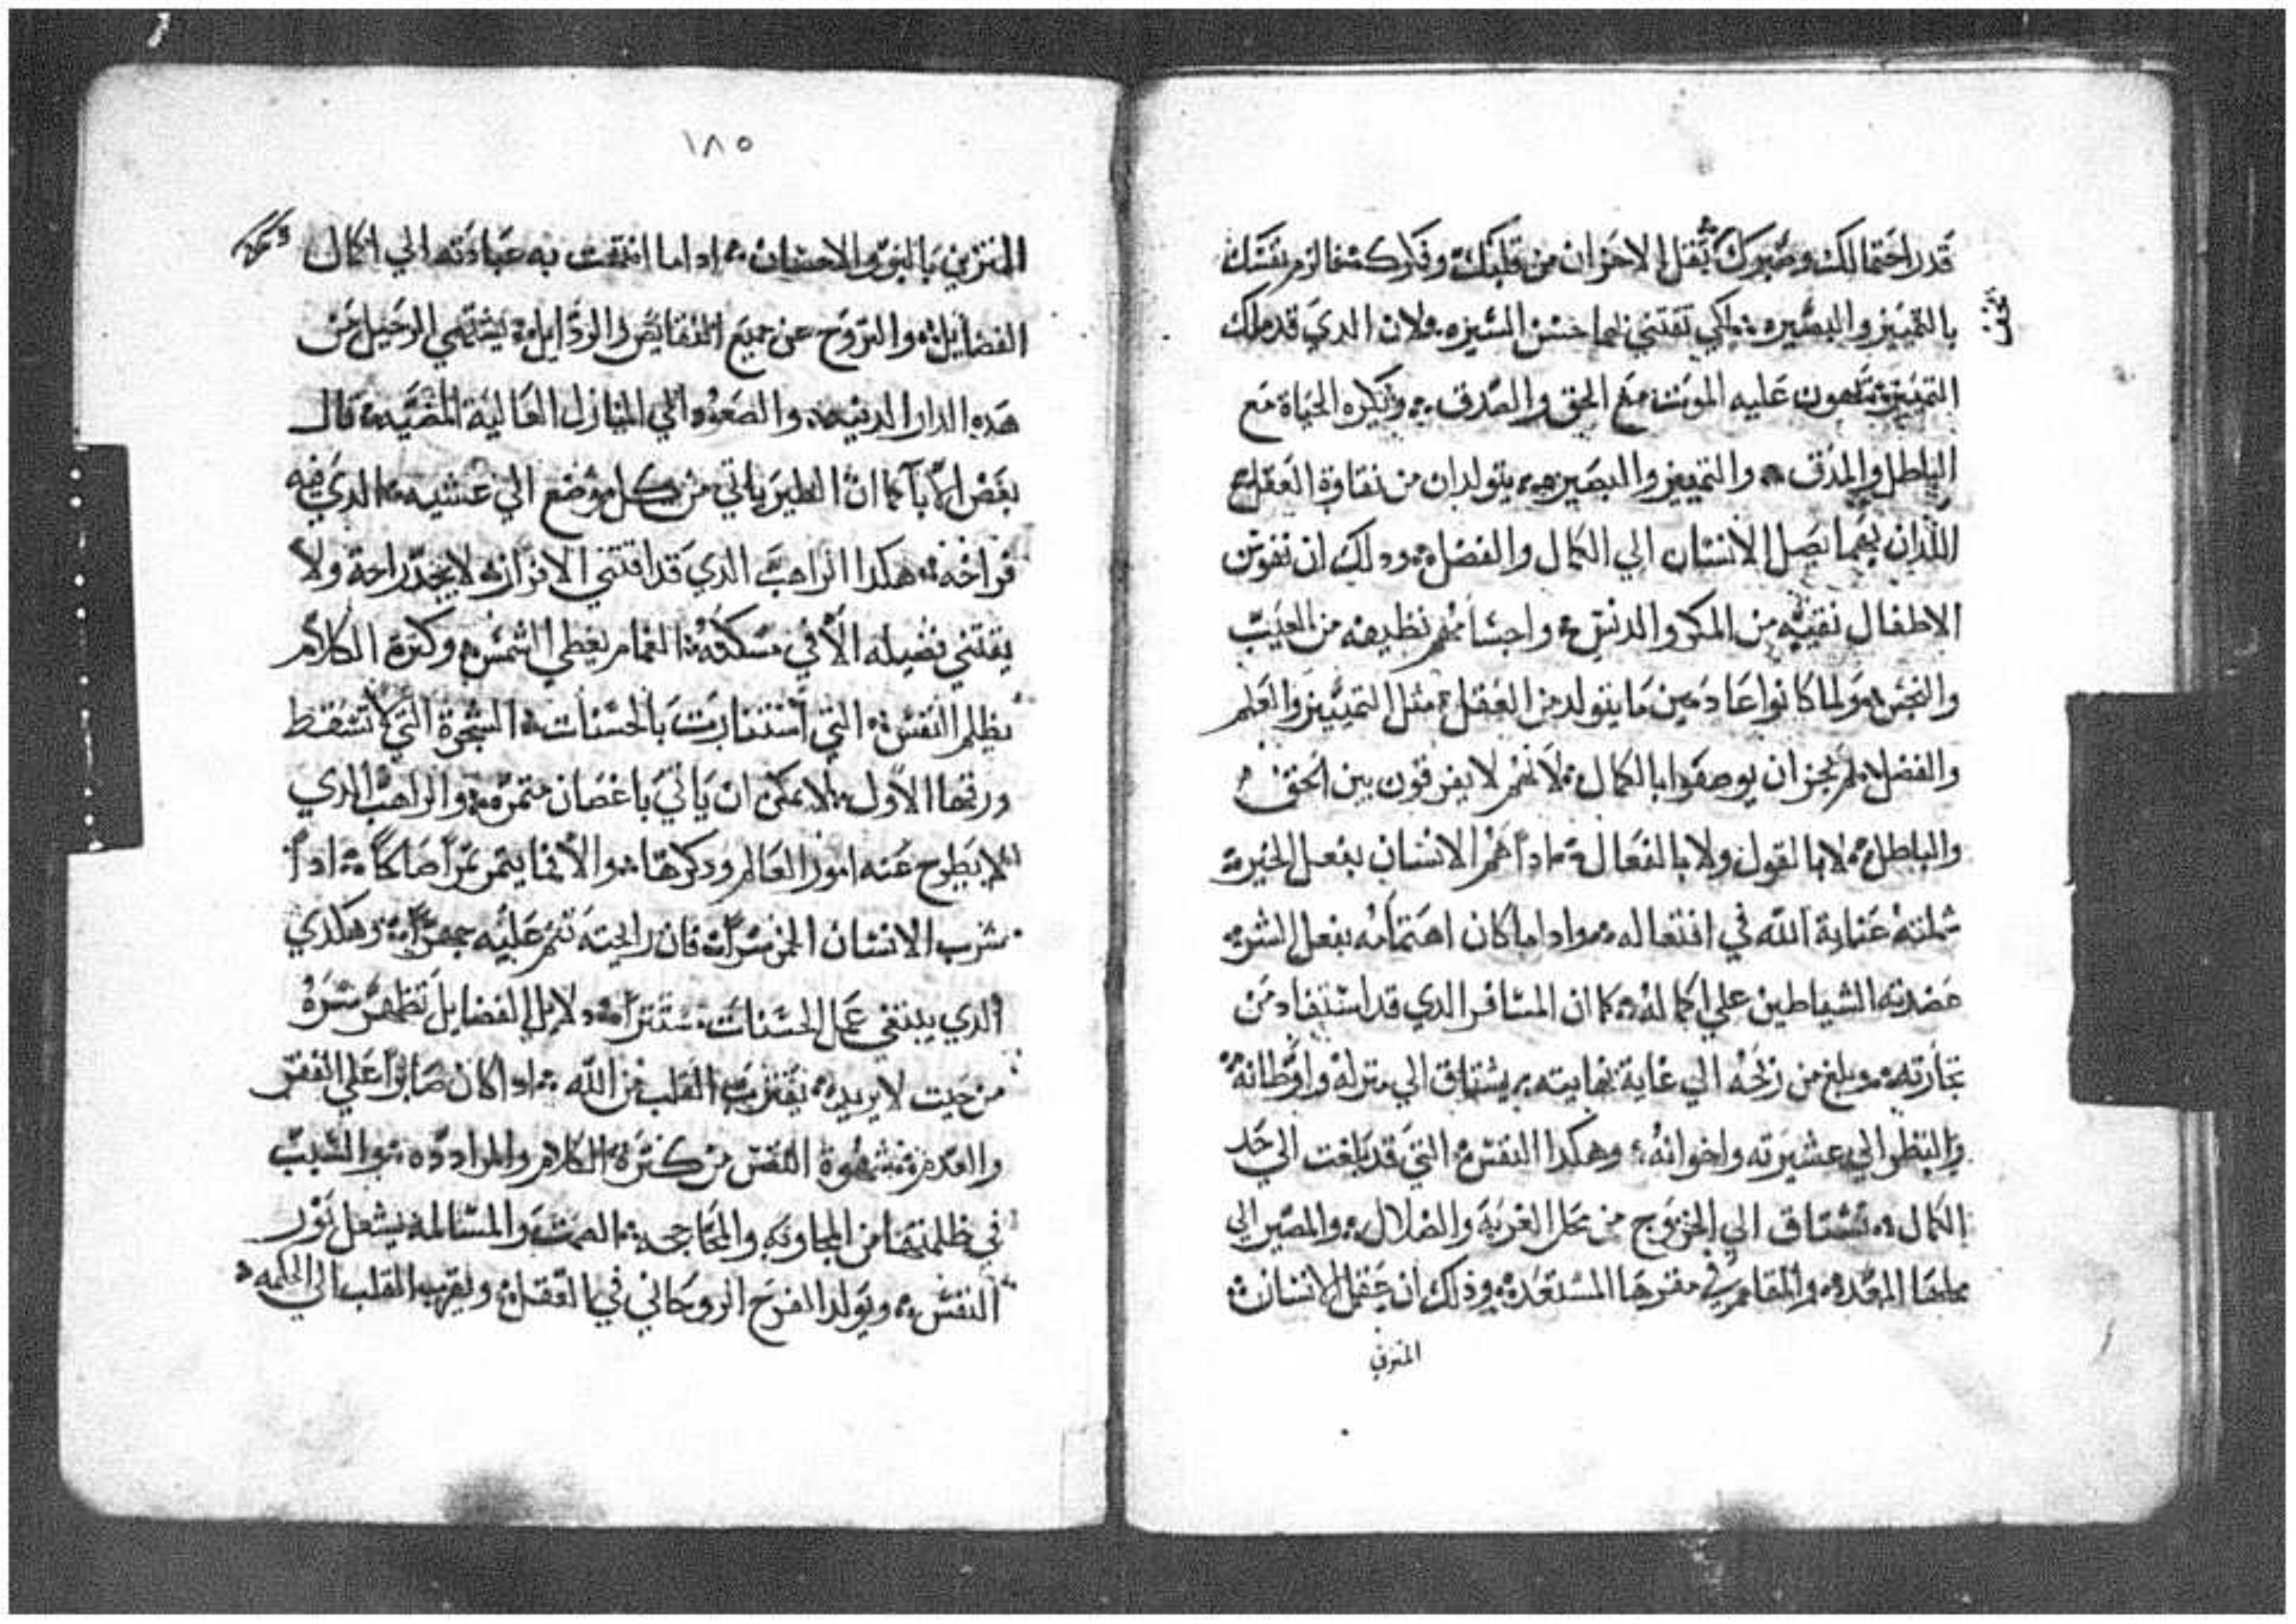 قدر احتمالك وصبورك بثقل الاحزان من قلبك وفكرك الزم نفسك
بالتمييز والبصيره لكي تقتني لها حسن السيره ولان الدي قد ملك
التمييز يهون عليه الموت مع الحق والصدق وتكره الحياة مع
الباطل والمدق والتمييز والبصيره يتولدان من نقاوة العقل
اللدان بهما يصل الانسان الي الكمال والفضل ودلك ان نفوس
الاطفال نقيه من المكر والدنس واجسامهم نظيفه من العيب
والنجس ولما كانوا عادمين ما يتولد من العقل مثل التمييز والعلم
والفضل لم يجز ان يوصفوا بالكمال لانهم لا يفرقون بين الحق
والباطل لا بالقول ولا بالفعال ادا هم الانسان بفعل الخير
شملته عناية الله في افتعاله وادا ما كان اهتمامه بفعل الشر
عضدته الشياطين علي اكماله كما ان المسافر الدي قد استفاد من
تجارته وبلغ من ربحه الي غاية نهايته يشتاق الي منزله واوطانه
والنظر الي عشيرته واخوانه وهكدا النفس التي قد بلغت الي حد
الكمال تشتاق الي الخروج من محل الغربة والضلال والمصير الي
محلها المعده والمقام في مقرها المستعده وذلك ان عقل الانسان
المتزين
١٨٥
المتزين بالبر والاحسان ادا ما انتهت به عبادته الي اكمال
الفضايل والتروح عن جميع النقايص والردايل يشتهي الرحيل عن
هده الدار الدنيه والصعود الي المنازل العالية المضيه قال
بعض الابا كما ان الطير ياتي من كل موضع الي عشيه الدي فيه
فراخه هكدا الراهب الدي قد اقتني الافراز لا يجد راحة ولا
يقتني فضيله الا في مسكنه الغمام يغطي الشمس وكثرة الكلام
يظلم النفس التي استنارت بالحسنات الشجرة التي لا تسقط
ورقها الاول لا يمكن ان ياتي باغصان مثمره والراهب الدي
لا يطرح عنه امور العالم ودكرها والا فما يثمر ثمرا صالحا ادا
شرب الانسان الخمر سرا فان رايحته تنم عليه جهرا وهكدي
الدي يبتغي عمل الحسنات سترا دلايل الفضايل تظهر سره
من حيث لا يريد يقترب القلب من الله ادا كان صابرا علي الفقر
والعدم شهوة النفس من كثرة الكلام والمرادده والسبب
في ظلمتها من المجاوبه والمحاججه الصمت والمسالمه يشعل نور
النفس ويولد الفرح الروحاني في العقل ويقرب القلب الي الحكمه